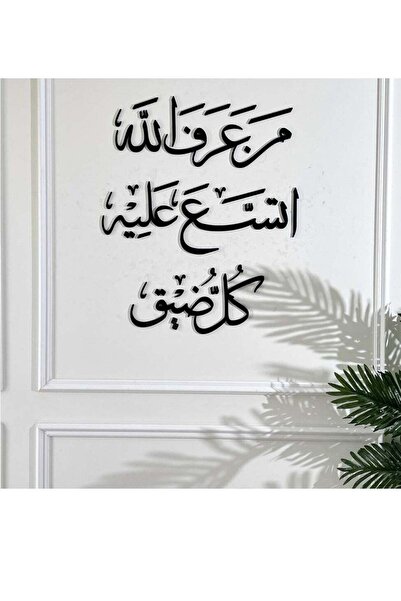 من عَرَفَ اللَّه
اتسَّعَ عَلَيْهِ
كُلُّ ضِيق